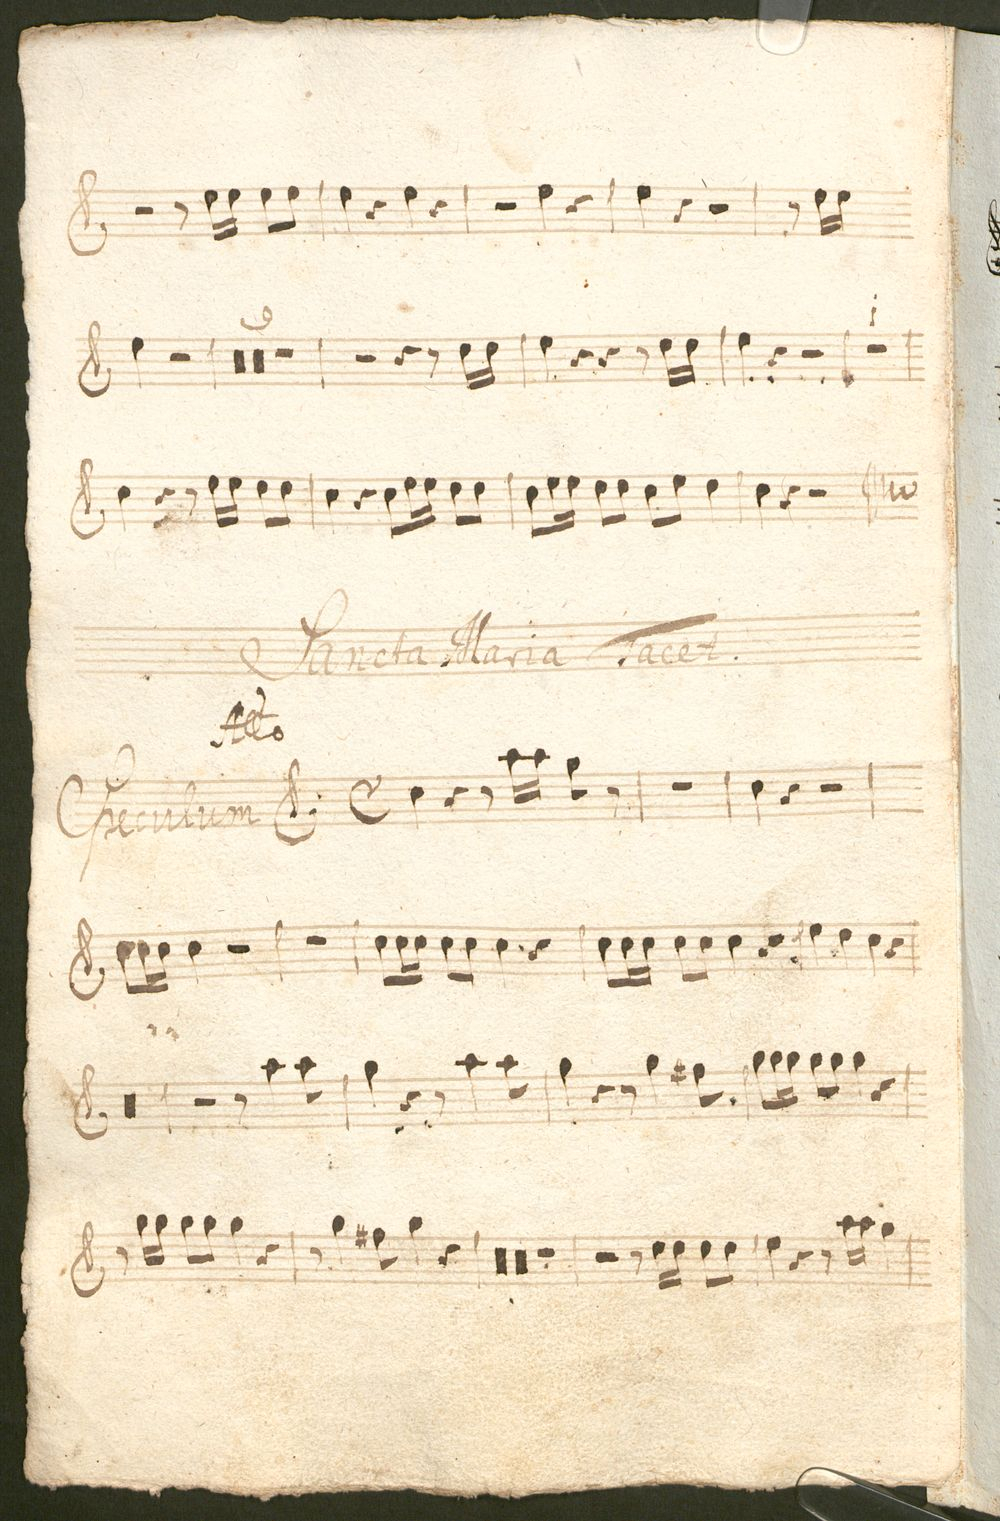 Sancta Maria Tacet.
Allo
Speculum